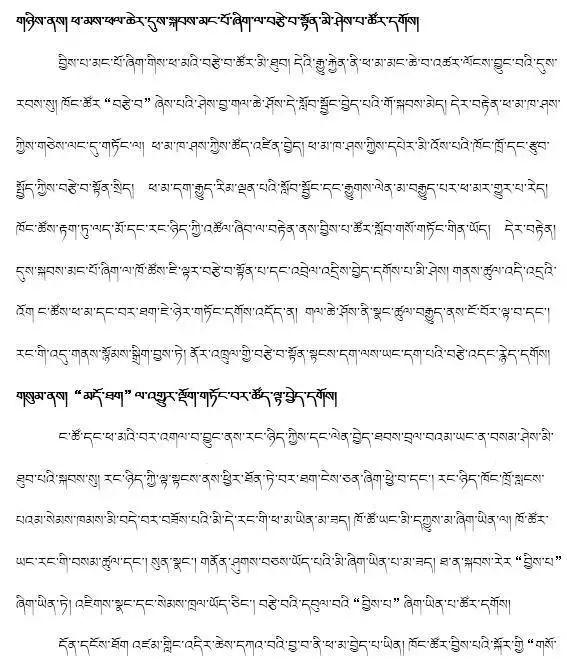 གཉིས་ནས། ཕ་མས་ཕལ་ཆེར་དུས་སྐབས་མང་པོ་ཞིག་ལ་བརྩེ་བ་སྟོན་མི་ཤེས་པ་ཚོར་དགོས།
བྱིས་པ་མང་པོ་ཞིག་གིས་ཕ་མའི་བརྩེ་བ་ཚོར་མི་ཐུབ། དེའི་རྒྱུ་རྐྱེན་ནི་ཕ་མ་མང་ཆེ་བ་འཚར་ལོངས་བྱུང་བའི་དུས་
རབས་སུ། ཁོང་ཚོར་“བརྩེ་བ”ཞེས་པའི་ཤེས་བྱ་གལ་ཆེ་ཤོས་དེ་སློབ་སྦྱོང་བྱེད་པའི་གོ་སྐབས་མེད། དེར་བརྟེན་ཕ་མ་ཁ་ཤས་
ཀྱིས་གཅེས་ལང་དུ་གཏོང་ལ། ཕ་མ་ཁ་ཤས་ཀྱིས་ཚོད་འཛིན་བྱེད། ཕ་མ་ཁ་ཤས་ཀྱིས་དཔེར་མི་འོས་པའི་ཁོང་ཁྲོ་དང་རྩུབ་
སྤྱོད་ཀྱིས་བརྩེ་བ་སྟོན་སྲིད། ཕ་མ་དག་རྒྱུད་རིམ་ལྡན་པའི་སློབ་སྦྱོང་དང་རྒྱུགས་ལེན་མ་བརྒྱུད་པར་ཕ་མར་གྱུར་པ་རེད།
ཁོང་ཚོས་རྟག་ཏུ་ལད་མོ་དང་རང་ཉིད་ཀྱི་འཚོལ་ཞིབ་ལ་བརྟེན་ནས་བྱིས་པ་ཚོར་སློབ་གསོ་གཏོང་གིན་ཡོད། དེར་བརྟེན།
དུས་སྐབས་མང་པོ་ཞིག་ལ་ཁོ་ཚོས་ཇི་ལྟར་བརྩེ་བ་སྟོན་པ་དང་འབྲེལ་འདྲིས་བྱེད་དགོས་པ་མི་ཤེས། གནས་ཚུལ་འདི་འདྲའི་
འོག་ང་ཚོས་ཕ་མ་དང་བར་ཐག་ཇེ་ཉེར་གཏོང་དགོས་འདོད་ན། གལ་ཆེ་ཤོས་ནི་སྣང་ཚུལ་བརྒྱུད་ནས་ངོ་བོར་ལྟ་བ་དང་།
རང་གི་འདུ་གནས་སྙོམས་སྒྲིག་བྱས་ཏེ། ནོར་འཁྲུལ་གྱི་བརྩེ་བ་སྟོན་སྟངས་དག་ལས་ཡང་དག་པའི་བརྩེ་འདང་རྙེད་དགོས།
གསུམ་ནས། “མདོ་ཐག”ལ་འགྱུར་ལྡོག་གཏོང་བར་ཚོད་ལྟ་བྱེད་དགོས།
ང་ཚོ་དང་ཕ་མའི་བར་འགལ་བ་བྱུང་ནས་རང་ཉིད་ཀྱིས་དང་ལེན་བྱེད་ཐབས་བྲལ་བའམ་ཡང་ན་བསམ་ཤེས་མི་
ཐུབ་པའི་སྐབས་སུ། རང་ཉིད་ཀྱི་ལྟ་སྟངས་ནས་ཕྱིར་ཐོན་ཏེ་བར་ཐག་ངེས་ཅན་ཞིག་ཕྱེ་བ་དང་། རང་ཉིད་ཁོང་ཁྲོ་སླངས་
པའམ་སེམས་ཁམས་མི་བདེ་བར་བཟོས་པའི་མི་དེ་རང་གི་ཕ་མ་ཡིན་མ་ཟད། ཁོ་ཚོ་ཡང་མི་དཀྱུས་མ་ཞིག་ཡིན་ལ། ཁོ་ཚོར་
ཡང་རང་གི་བསམ་ཚུལ་དང་། སུན་སྣང་། གནོན་ཤུགས་བཅས་ཡོད་པའི་མི་ཞིག་ཡིན་པ་མ་ཟད། ཐ་ན་སྐབས་རེར་“བྱིས་པ”
ཞིག་ཡིན་ཏེ། འཇིགས་སྣང་དང་སེམས་ཁྲལ་ཡོད་ཅིང་། བརྩེ་བའི་དབུལ་བའི་“བྱིས་པ”ཞིག་ཡིན་པ་ཚོར་དགོས།
དོན་དངོས་ཐོག་འཛམ་གླིང་འདིར་ཆེས་དཀའ་བའི་བྱ་བ་ནི་ཕ་མ་བྱེད་པ་ཡིན། ཁོང་ཚོར་བྱིས་པའི་སྐོར་གྱི་“གསོ་